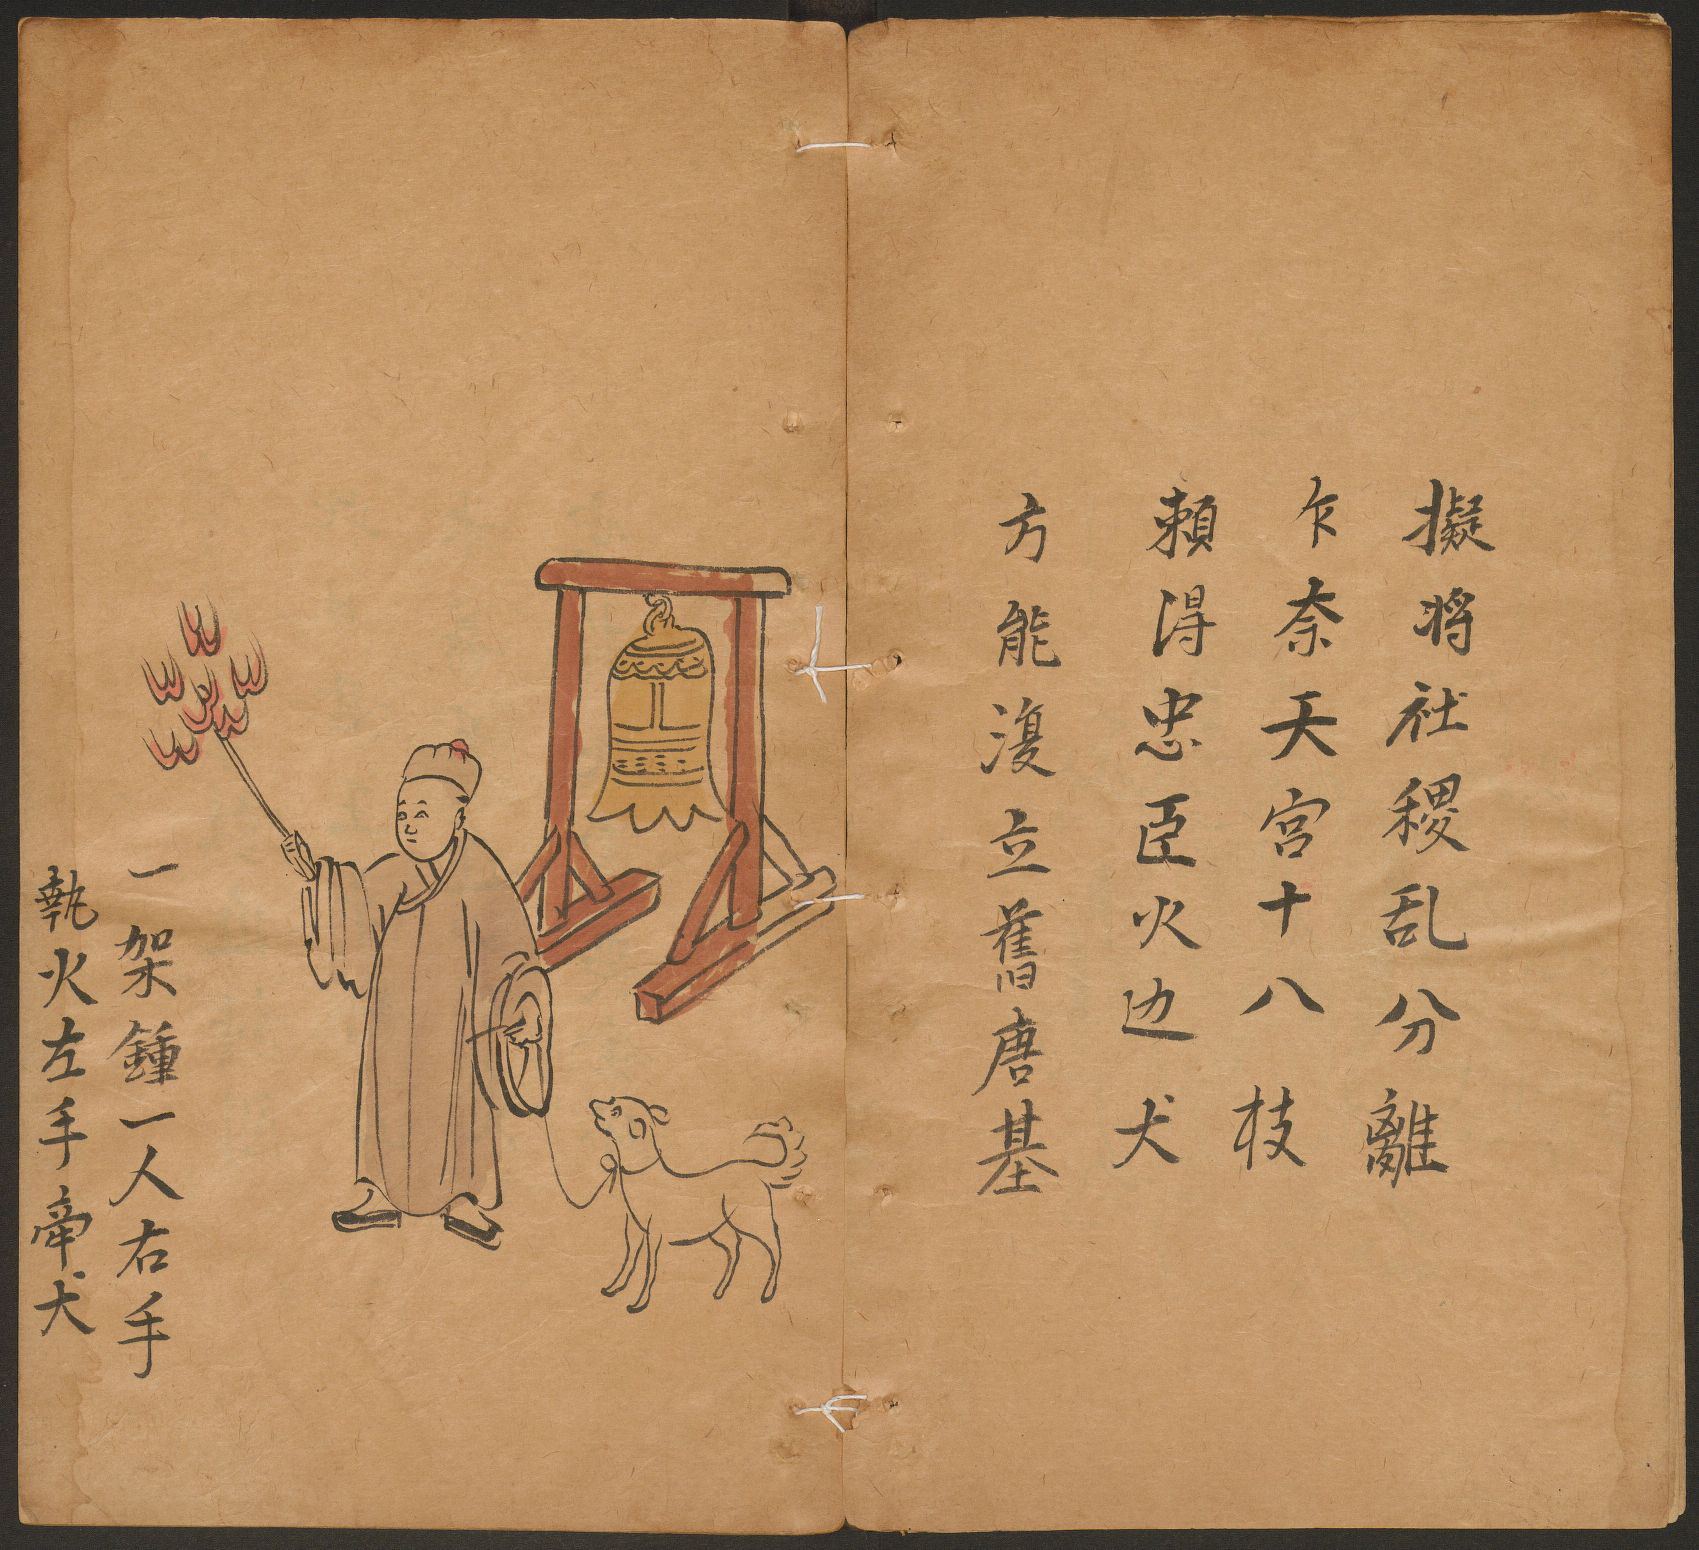 擬将社稷乱分離
乍奈天宮十八枝
頼淂忠臣火边犬
方能澓立舊唐基
一架鍾一人右手
執火左手牵犬